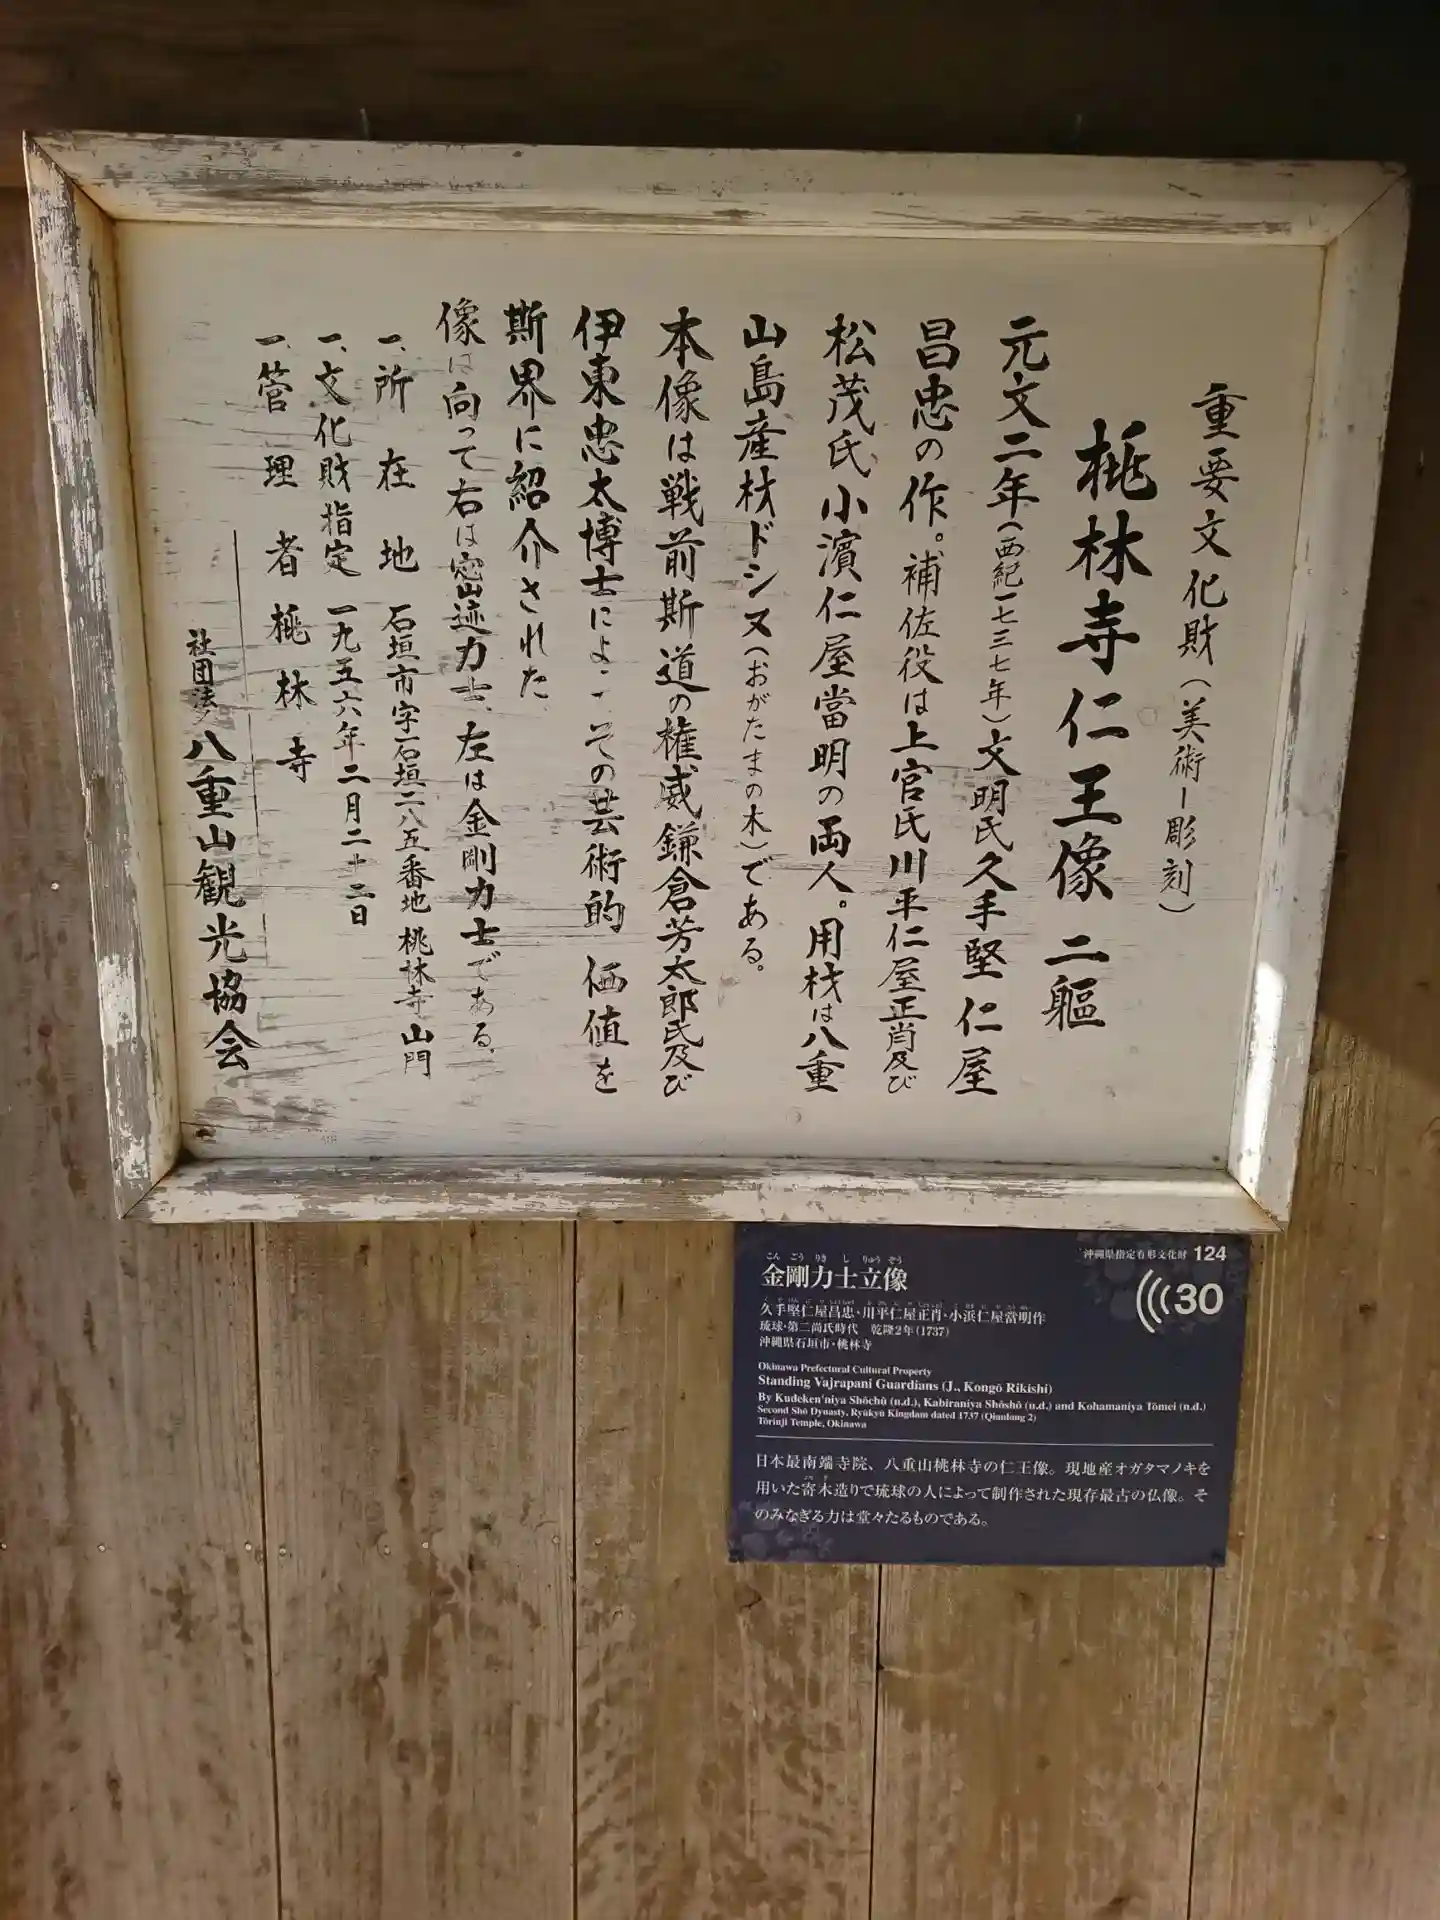 重要文化財(美術ー彫刻)
桃林寺仁王像 二軀
元文二年(西紀一七三七年)文明氏久手堅仁屋
昌忠の作。補佐役は上官氏川平仁屋正肖及び
松茂氏小濱仁屋當明の両人。用材は八重
山島産材ドシヌ(おがたまの木)である。
本像は戦前斯道の権威鎌倉芳太郎氏及び
伊東忠太博士によってその芸術的価値を
斯界に紹介された
像は向って右は密迹力士、左は金剛力士である。
一、所在地 石垣市字石垣二八五番地桃林寺山門
一、文化財指定 一九五六年二月二十二日
一、管理者 桃林寺
社団法人 八重山観光協会
沖縄県指定有形文化財 124
30
こんごうりきしりゅうぞう
金剛力士立像
久手堅仁屋昌忠・川平仁屋正肖・小浜仁屋當明作
琉球・第二尚氏時代 乾隆2年(1737)
沖縄県石垣市・桃林寺
Okinawa Prefectural Cultural Property
Standing Vajrapani Guardians (J., Kongō Rikishi)
By Kudeken'niya Shōchū (n.d.), Kabiraniya Shōshō (n.d.) and Kohamaniya Tōmei (n.d.)
Second Shō Dynasty, Ryūkyū Kingdom dated 1737 (Qianlong 2)
Tōrinji Temple, Okinawa
日本最南端寺院、八重山桃林寺の仁王像。現地産オガタマノキを
用いた寄木造りで琉球の人によって制作された現存最古の仏像。そ
のみなぎる力は堂々たるものである。